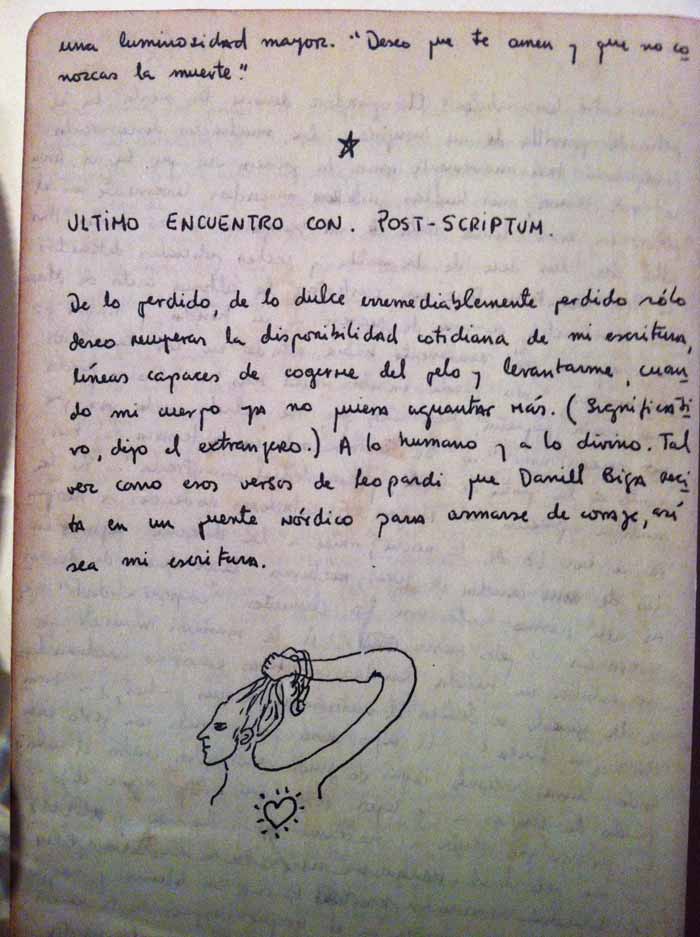 una luminosidad mayor. "Deseo que te amen y que no co
nozcas la muerte".
ULTIMO ENCUENTRO CON. POST-SCRIPTUM.
De lo perdido, de lo dulce irremediablemente perdido sólo
deseo recuperar la disponibilidad cotidiana de mi escritura,
líneas capaces de cogerme del pelo y levantarme, cuan
do mi cuerpo ya no quiera aguantar más. (Significati
vo, dijo el extranjero.) A lo humano y a lo divino. Tal
vez como esos versos de Leopardi que Daniel Biga reci
ta en un puente nórdico para armarse de coraje, así
sea mi escritura.